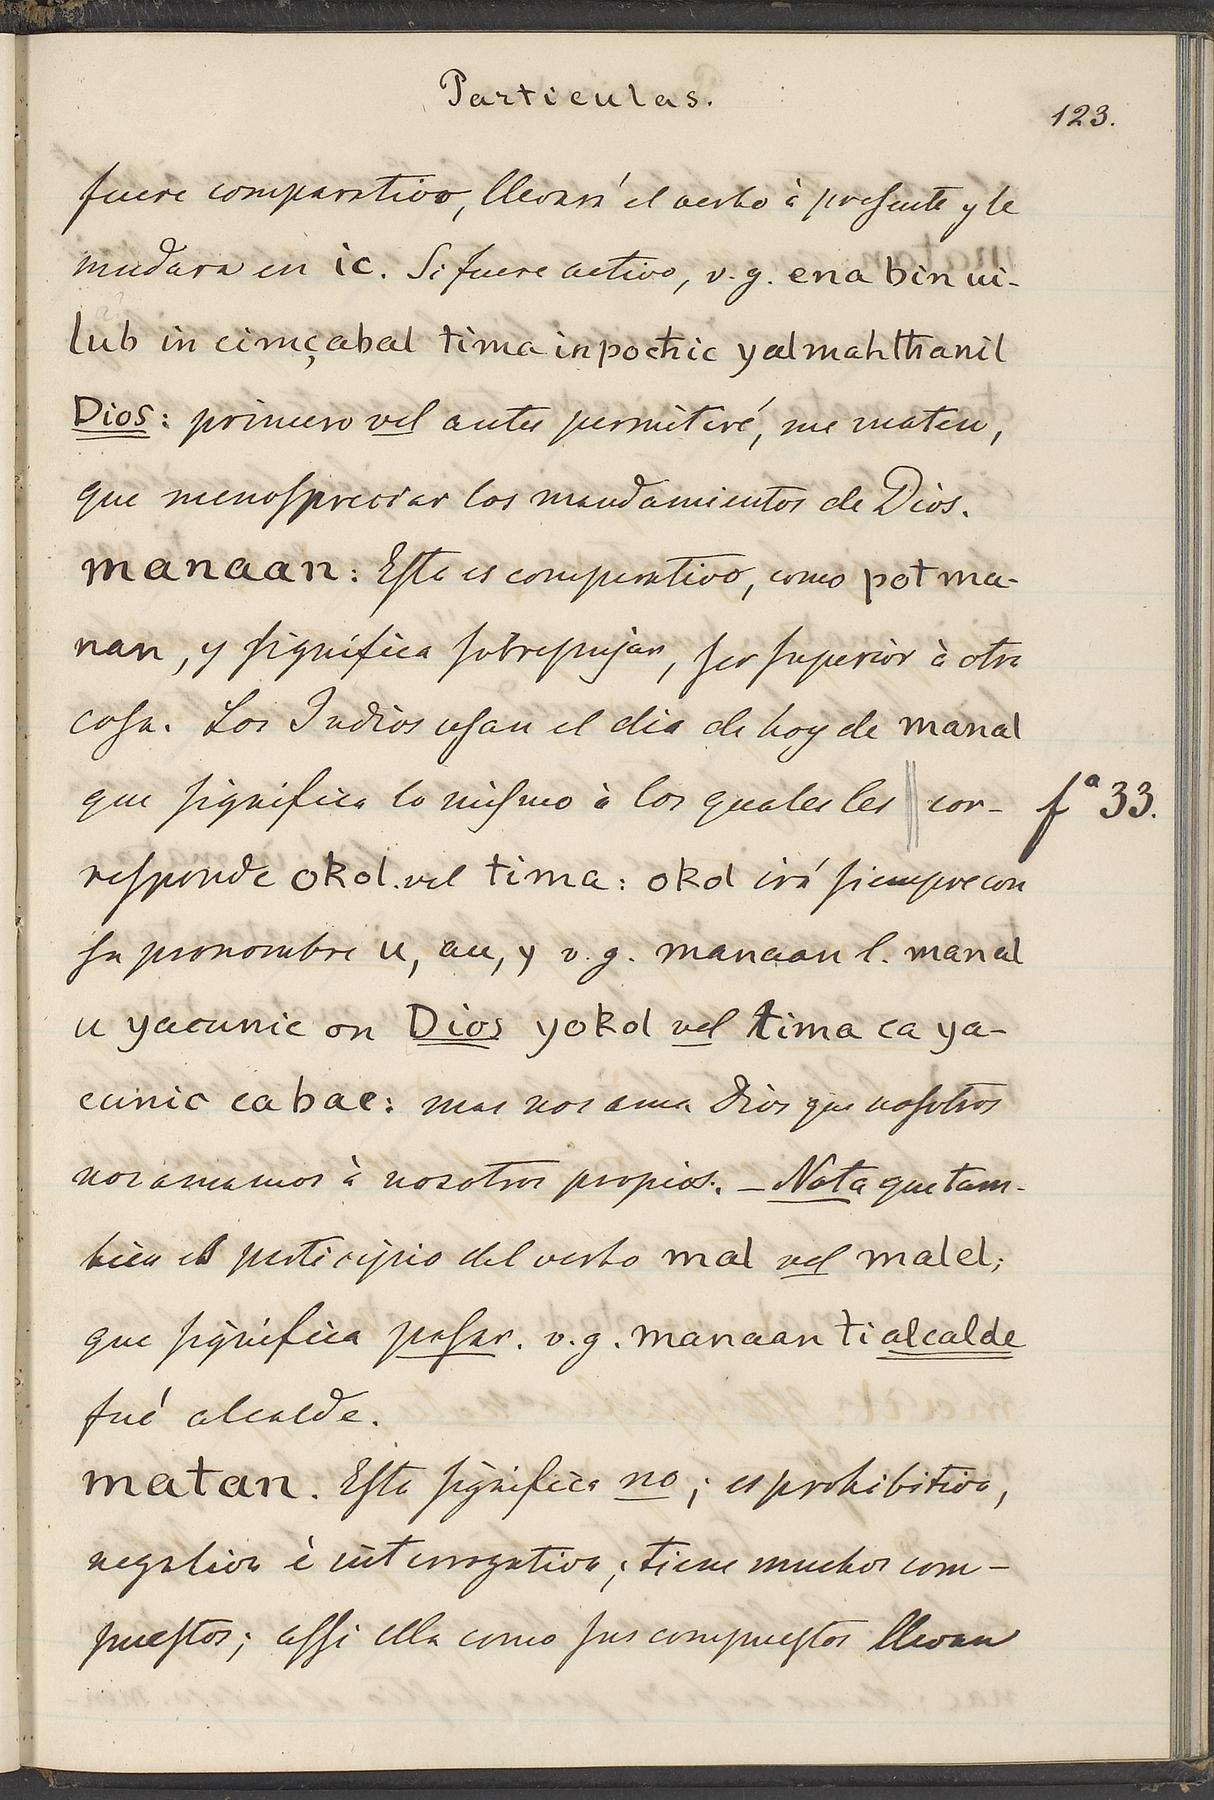 Particulas.
123.
fuere comparativo, llevará el verbo à presente y le
mudara en ic. Si fuere activo, v.g. ena bin ui-
lub in cimçabal tima inpochic yalmahthanil
Dios: primero vel antes permitiré, me maten,
que menospreciar los mandamientos de Dios.
manaan: Este es comparativo, como potma-
nan, y significa sobrepujar, ser superior à otra
cosa. Los Indios usan el dia de hoy de manal
que significa lo mismo à los quales les || cor-
fᵃ 33.
responde okol. vel tima: okol irá siempre con
su pronombre u, au, y v.g. manaan l. manal
u yacunic on Dios yokol vel tima ca ya-
cunic cabae: mas nos ama Dios que nosotros
nos amamos à nosotros propios. – Nota que tam-
bien es participio del verbo mal vel malel;
que significa pasar. v.g. manaan ti alcalde
fué alcalde.
matan. Esta significa no; es prohibitiva,
negativa è interrogativa; tiene muchos com-
puestos; assi ella como sus compuestos llevan